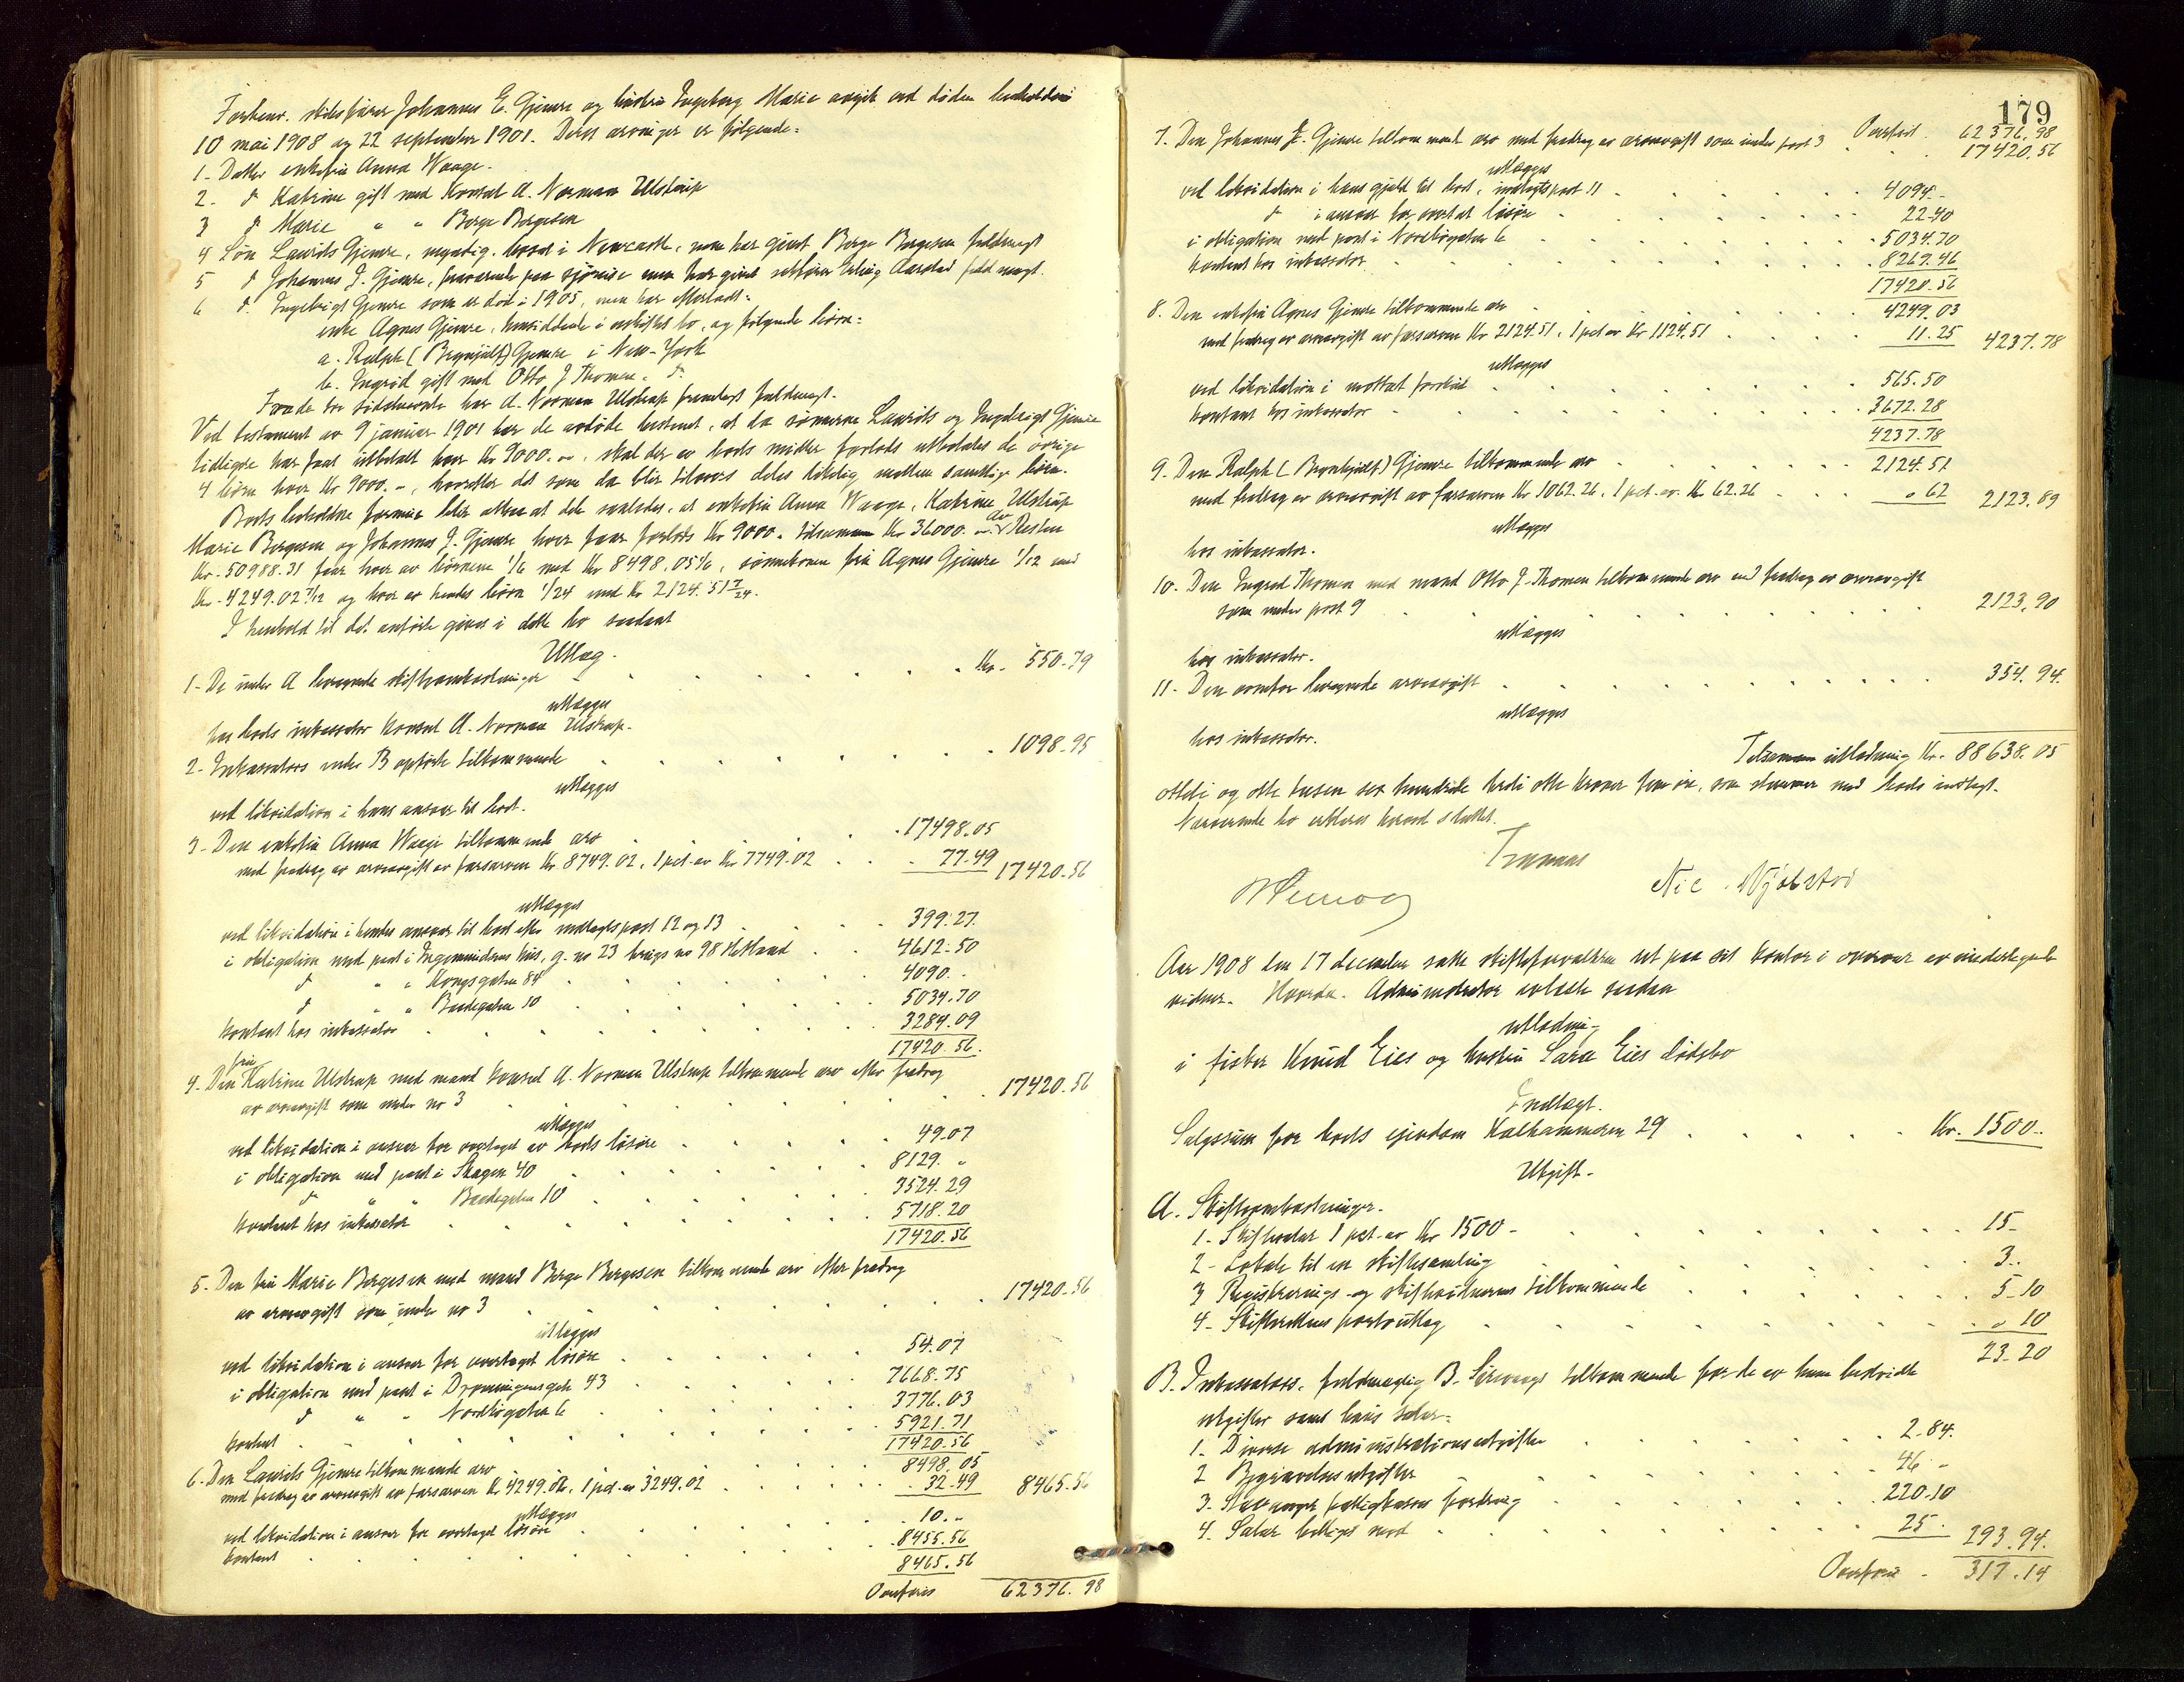 Forhenv. skibsfører Johannes E. Gjemre og hustru Ingeborg Marie avgik ved døden henholdsvis
10 mai 1908 og 22 september 1901. Deres arvinger er følgende:
1. Datter enkefru Anna Waage.
2. d° Katrine gift med Konsul A. Norman Ulstrup
3 d° Marie " " Berge Bergesen
4 Søn Laurits Gjemre, myndig, bosat i Newcastle, som har givet Berge Bergesen fuldmagt
5 d° Johannes J. Gjemre, fraværende paa sjøreise men har givet sakfører Erling Aarstad fuldmagt.
6 d° Ingebrigt Gjemre som er død i 1905, men har efterladt:
enke Agnes Gjemre, hensiddende i uskiftet bo, og følgende børn:
a. Ralph (Brynjulf) Gjemre i New-York
b. Ingrid gift med Otto J Thomen. d°
For de tre sidstnævnte har A. Norman Ulstrup fremlagt fuldmagt.
Ved testament av 9 januar 1901 har de avdøde bestemt, at da sønnerne Laurits og Ingebrigt Gjemre
tidligere har faat utbetalt hver Kr 9000.-, skal der av boets midler forlods utbetales de øvrige
4 børn hver Kr 9000.-, hvorefter det som da blir tilovers deles likelig mellem samtlige børn.
Boets beholdne formue blir altsaa at dele saaledes, at enkefru Anna Waage, Katrine Ulstrup
Marie Bergesen og Johannes J. Gjemre hver faar forlods Kr 9000.- tilsammen Kr 36000.- av Resten
Kr. 50988.31 faar hver av børnene 1/6 med Kr 8498.05 1/6, sønnekonen fru Agnes Gjemre 1/12 med
Kr. 4249.02 7/12 og hver av hendes børn 1/24 med Kr 2124.51 7/24.
I henhold til det anførte gives i dette bo saadant
Utlæg.
1. De under A beregnede skifteomkostninger Kr. 550.79
utlægges
hos boets inkassator Konsul A. Norman Ulstrup.
2. Inkassators under B opførte tilkommende 1098.95
utlægges
ved likvidation i hans ansvar til boet.
3. Den enkefru Anna Waage tilkommende arv 17498.05
med fradrag av arveavgift av farsarven Kr 8749.02, 1 pct. av Kr 7749.02 77.49 17420.56
utlægges
ved likvidation i hendes ansvar til boet efter indtægtspost 12 og 13 399.27
i obligation med pant i Ingemundsens hus, g. no 23 brugs no 98 Hetland 4612.50
d° " " Kongsgaten 84 4090.-
d° " " Bredegaten 10 5034.70
kontant hos inkassator 3284.09
17420.56.
4. Den fru Katrine Ulstrup med mand konsul A. Norman Ulstrup tilkommende arv efter fradrag
av arveavgift som under no 3 17420.56
utlægges
ved likvidation i ansvar for overtaget av boets løsøre 49.07
i obligation med pant i Skagen 40 8129. "
d° " " Bredegaten 10 3524.29
kontant hos inkassator 5718.20
17420.56
5. Den fru Marie Bergesen med mand Berge Bergesen tilkommende arv efter fradrag
av arveavgift som under no 3 17420.56
utlægges
ved likvidation i ansvar for overtaget løsøre 54.07
i obligation med pant i Dronningensgate 43 7668.75
d° " " Nordbøgaten 6 3776.03
kontant 5921.71
17420.56
6. Den Laurits Gjemre tilkommende arv 8498.05
med fradrag av arveavgift av farsarven Kr 4249.02, 1 pct. av 3249.02 32.49 8465.56
utlægges
ved likvidation i ansvar for overtaget løsøre 10.-
kontant 8455.56
8465.56
Overføres 62376.98
179
Overført 62376.98
7. Den Johannes J. Gjemre tilkommende arv med fradrag av arveavgift som under post 3 17420.56
utlægges
ved likvidation i hans gjæld til boet, indtægtspost 11 4094.-
d° i ansvar for overtat løsøre 22.40
i obligation med pant i Nordbøgaten 6 5034.70
kontant hos inkassator 8269.46
17420.56
8. Den enkefru Agnes Gjemre tilkommende arv 4249.03
med fradrag av arveavgift av farsarven Kr 2124.51, 1 pct av Kr 1124.51 11.25 4237.78
utlægges
ved likvidation i mottat forskud 565.50
kontant hos inkassator 3672.28
4237.78
9. Den Ralph (Brynhjulf) Gjemre tilkommende arv 2124.51
med fradrag av arveavgift av farsarven Kr 1062.26, 1 pct. av Kr 62.26 " 62 2123.89
utlægges
hos inkassator.
10. Den Ingrid Thomen med mand Otto J. Thomen tilkommende arv med fradrag av arveavgift
som under post 9 2123.90
utlægges
hos inkassator.
11. Den ovenfor beregnede arveavgift 354.94.
utlægges
hos inkassator.
Tilsammen utlodning Kr. 88638.05
otteti og otte tusen sex hundrede tredi otte kroner fem øre, som stemmer med boets indtægt.
Nærværende bo erklæres hermed sluttet.
Nic. Njølstad
Aar 1908 den 17 december satte skifteforvalteren ret paa sit kontor i overvær av undertegnede
vidner. Hvorda. Administrator avlæste saadan
utlodning
i fisker Knud Eies og hustru Sara Eies dødsbo
Indtægt.
Salgssum for boets eiendom Kalhammeren 29 Kr. 1500..
Utgift.
A. Skifteomkostninger.
1. Skiftesalær 1 pct. av Kr 1500 - 15-
2. Lokale til en skiftesamling 3..
3 Registrerings- og skiftevidnernes tilkommende 5.10
4. Skifterettens portoutlæg " 10
23.20
B. Inkassators, fuldmægtig B. tilkommende for de av ham bestridte
utgifter samt hans salær:
1. Diverse administrationsutgifter 2.84.
2 Begravelsesutgifter 46. -
3. Stavanger fattigkasses fordring 220.10
4. Salær billiget med 25. 293.94.
Overføres - 317.14